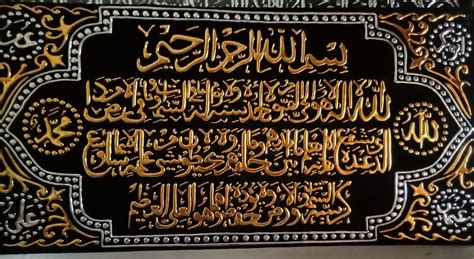 ابو بكر
عمر
بسم الله الرحمن الرحيم
الله لا اله الا هو الحي القيوم لا تأخذه سنة ولا نوم له ما في السموات وما في الارض من ذا
الله
محمد
الذي يشفع عنده الا باذنه يعلم ما بين ايديهم وما خلفهم ولا يحيطون بشيء من علمه الا بما شاء وسع
كرسيه السموات والارض ولا يؤده حفظهما وهو العلي العظيم
عثمان
علي